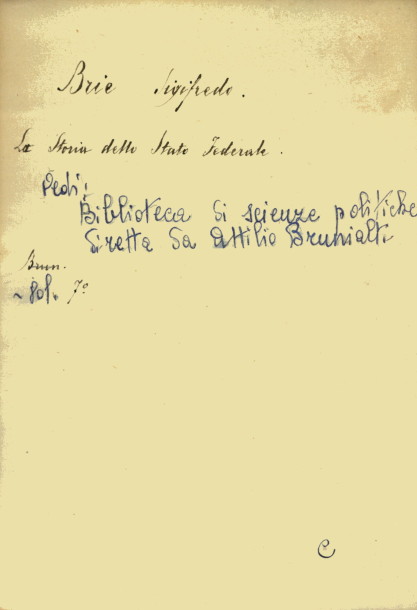 Brie Sigifredo.
La Storia dello Stato Federale.
Vedi:
Biblioteca di scienze politiche
diretta da Attilio Brunialti
Brun.
Vol. 7º
C